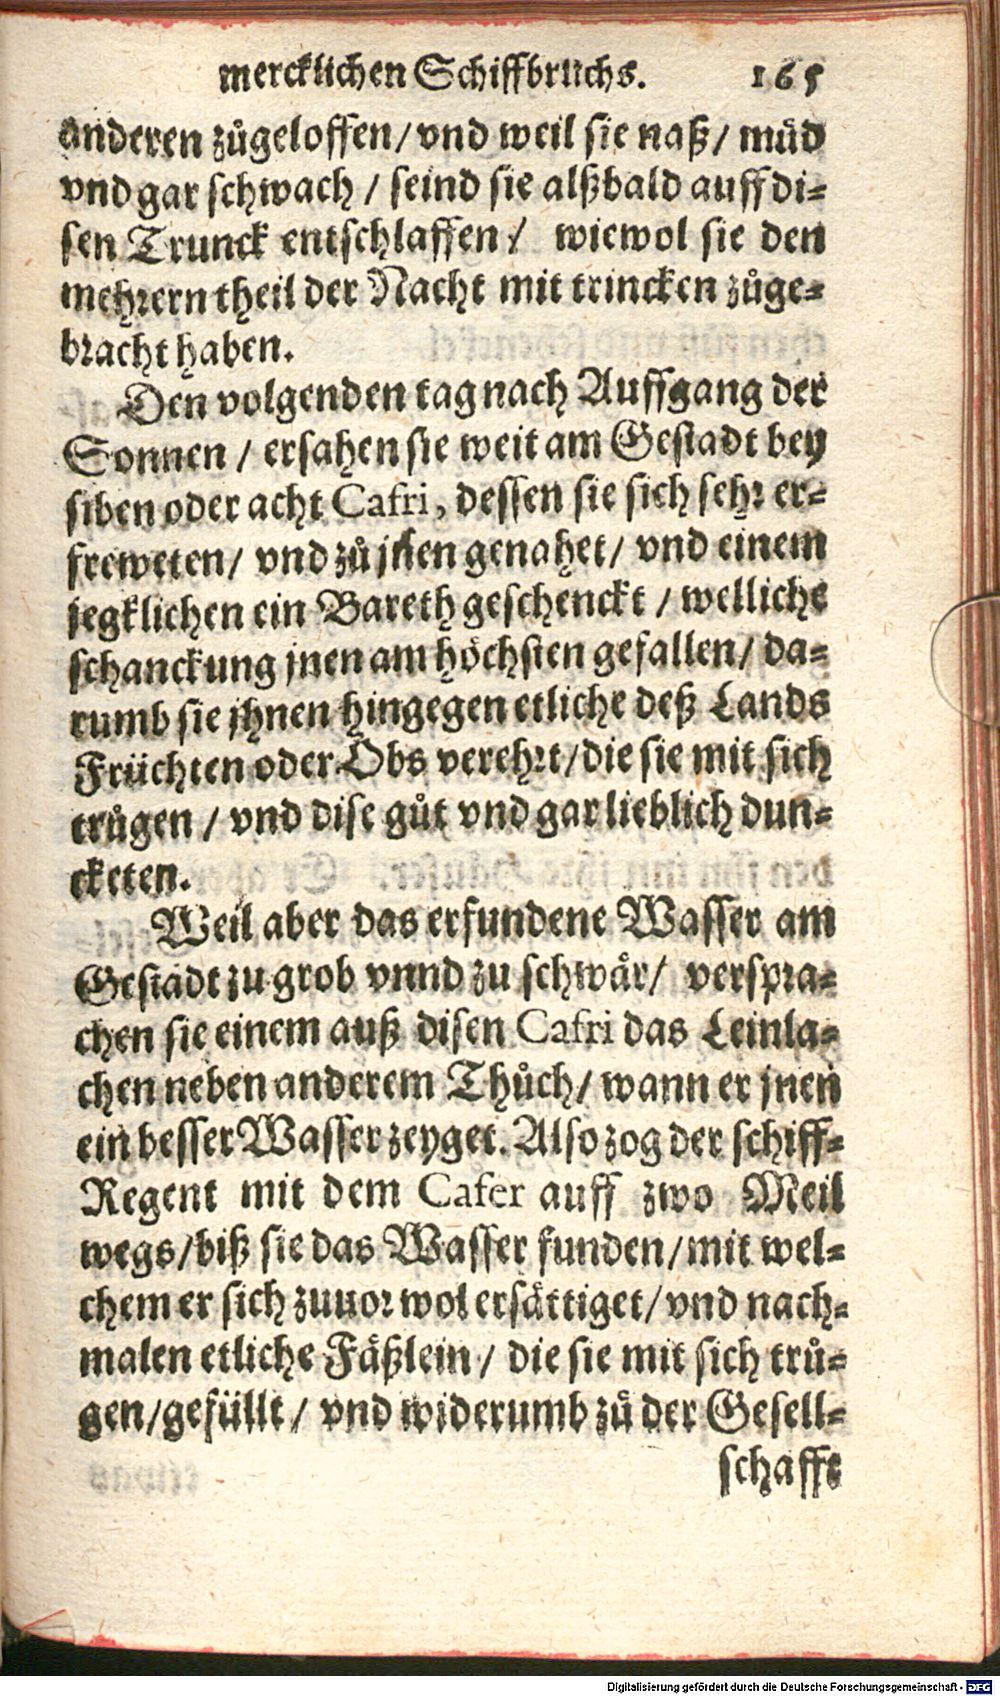 mercklichen Schiffbruchs. 165
anderen zůgeloffen/ vnd weil sie naß/ müd
vnd gar schwach / seind sie alßbald auff di-
sen Trunck entschlaffen / wiewol sie den
mehrern theil der Nacht mit trincken zůge-
bracht haben.
Den volgenden tag nach Auffgang der
Sonnen / ersahen sie weit am Gestadt bey
siben oder acht Cafri, dessen sie sich sehr er-
freweten/ vnd zů jhen genahet/ vnd einem
jegklichen ein Bareth geschenckt / welliche
schanckung jnen am höchsten gefallen/ da-
rumb sie jhnen hingegen etliche deß Lands
Früchten oder Obs verehrt/ die sie mit sich
trůgen / vnd dise gůt vnd gar lieblich dun-
cketen.
Weil aber das erfundene Wasser am
Gestadt zu grob vnnd zu schwår/ verspra-
chen sie einem auß disen Cafri das Leinla-
chen neben anderem Thůch/ wann er jnen
ein besser Wasser zeyget. Also zog der schiff-
Regent mit dem Cafer auff zwo Meil
wegs/ biß sie das Wasser funden/ mit wel-
chem er sich zuuor wol ersåttiget/ vnd nach-
malen etliche Fäßlein / die sie mit sich trů-
gen/ gefüllt / vnd widerumb zů der Gesell-
schafft
Digitalisierung gefördert durch die Deutsche Forschungsgemeinschaft - DFG